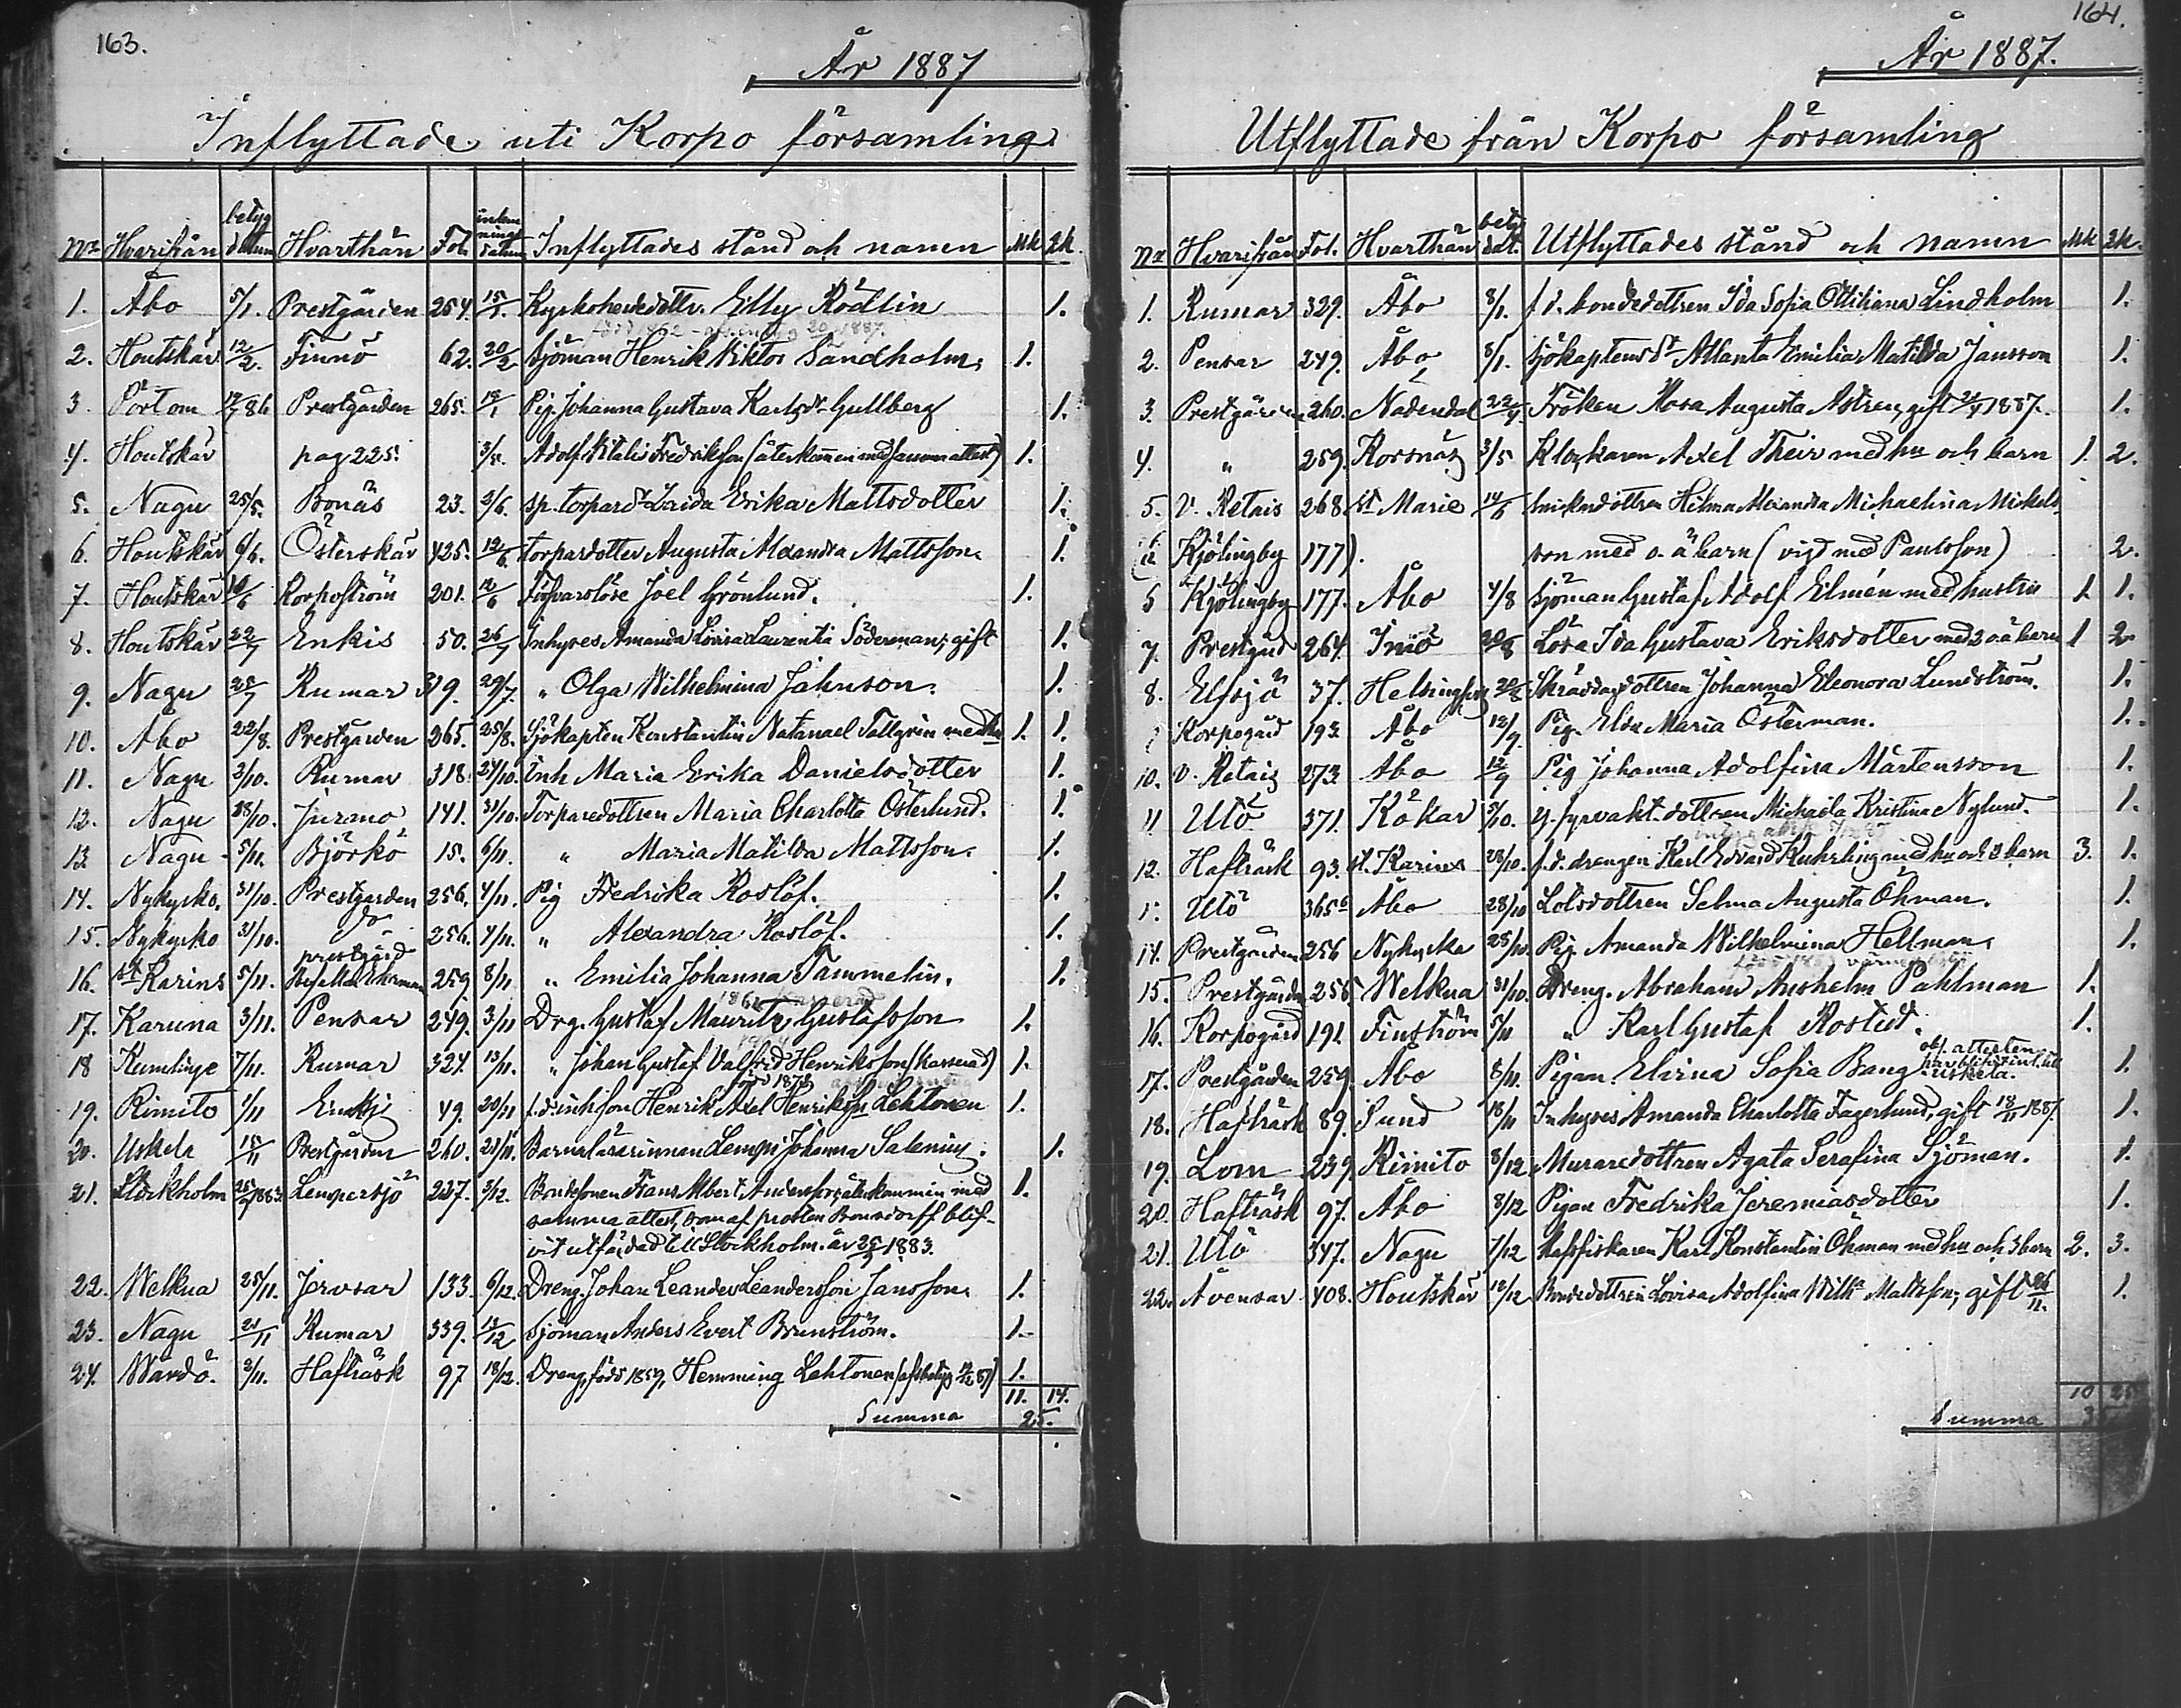 163.
År 1887
Inflyttade uti Korpo församling
No Hvarifrån betyg datum Hvarthän Fol. datum Inflyttades stånd och namn Mk Qk.
1. Åbo 5/1. Prestgården 254. 15/1. Elly Rödlin 1.
2. Houtskär 12/2. Finnö 62. 20/2 Sjöman Henrik Viktor Sandholm. 1.
3. Pörtom 86 Prestgården 265. Pig. Johanna Gustava Karlsdr Gullberg 1.
4. Houtskär pag 225. 3/5. Adolf Vitalis Fredriksson (återkommen med samma attest) 1.
5. Nagu 25/5. Bonäs 23. 2/6. sp. torpard Erika Mattsdotter 1.
6. Houtskär 6/6. Österskär 425. 12/6. torpardotter Augusta Alexandra Mattsson. 1.
7. Houtskär Korpoström 201. 12/6 Försvarslöse Joel Grönlund. 1.
8. Houtskär 22/7 Enkis 50. 26/7 Inhyses Amanda Lovisa Laurentia Söderman; gift 1.
9. Nagu 25/7 Rumar 319. 29/7. " Olga Wilhelmina Jahnson. 1.
10. Åbo 22/8. Prestgården 265. 25/8. Sjökapten Konstantin Natanael Tallgren med hu 1. 1.
11. Nagu 3/10. Rumar 318 24/10. Inh Maria Erika Danielsdotter 1.
12. Nagu 28/10. Jurmo 141. 31/10. Torparedottren Maria Charlotta Österlund. 1.
13. Nagu 5/11. Björkö 15. 6/11. " Maria Matilda Mattsson. 1.
14. Nykyrko. 31/10. Prestgården 256. 4/11. Pig Fredrika Roslöf. 1.
15. Nykyrko 31/10. Do 256. 4/11. " Alexandra Roslöf. 1.
16. St Karins 5/11. prestgård 259 8/11. " Emilia Johanna Tammelin. 1.
17. Karuna 3/11. Pensar 249. 3/11 Drg. Gustaf Mauritz Gustafsson 1.
18 Kumlinge 7/11. Rumar 324. 13/11. " Johan Gustaf Valfrid Henriksson (kasserad) 1.
19. Rimito 1/11 49. 20/11 Henrik Axel Henriksson Lehtonen 1.
20. Uskela 15/11 Prestgården 260. 21/11. Barnalärarinnan Lempi Johanna Salenius. 1.
21. Stockholm 1883 Lempersjö 237. 3/12. Bondsonen Frans Albert Andersson, återkommin med 1.
samma attest, som af prosten Bonsdorff blif-
vit utfärdad till Stockholm. år 25/9 1883.
22. Welkua 25/11. Jervsar 133. 6/12. Dreng. Johan Leander Leandersson Jansson. 1.
23. Nagu 21/11 Rumar 339. 12/12 Sjöman Anders Evert Brunström. 1.
24. Wårdö. 2/11. Hafträsk 97 18/12. Dreng, född 1859, Hemming Lehtonen 1.
11. 14.
Summa 25.
164.
År 1887.
Utflyttade från Korpo församling
No Hvarifrån Fol. Hvarthän betyg dat. Utflyttades stånd och namn Mk Qk.
1. Rumar 329. Åbo 8/1. f.d. bondedottren Ida Sofia Ottiliana Lindholm 1.
2. Pensar 249. Åbo 8/1. Sjökaptensdr Atlanta Emilia Matilda Jansson 1.
3. Prestgården 260. Nådendal 22/4. Fröken Rosa Augusta Astren, gift 1887. 1.
4. " 259. Korsnäs 3/5 Klockaren Axel Their med hu och barn 1. 2.
5. V. Retais 268. St Marie 14/5 Hilma Alexandra Michaelina Mickels-
Kjölingby 177). son med o. ä barn (vigd med Paulsson) 2.
Kjölingby 177. Åbo 4/8 Sjöman Gustaf Adolf Elmén med hustru 1. 1.
7. Prestgård 264. Iniö 20/8 Lösa Ida Gustava Eriksdotter med 2 oä barn 1 2
8. Elfsjö 37. Helsingfors Skräddaredottren Johanna Eleonora Lundström. 1.
Korpogård 193. Åbo 12/9. Pig. Elda Maria Österman. 1.
10. V. Retais 273. Åbo 12/9 Pig Johanna Adolfina Mårtensson 1.
11 Utö 371. Kökar 5/10. fyrvakt. dottren Michaela Kristina Nylund. 1.
12. Hafträsk 93. st. Karins 28/10. f.d. drengen Karl Edvard Kuhrling med hu och 2 barn 3. 1.
Utö 365 Åbo 28/10 Lotsdottren Selma Augusta Öhman. 1.
14. Prestgården 256 Nykyrka 25/10. Pig. Amanda Wilhelmina Hellman. 1.
15. Prestgården 256. Welkua 31/10. Dreng. Abraham Anshelm Pahlman 1.
16. Korpogård 191. Finström 5/11 " Karl Gustaf Rostedt. 1.
17. Prestgården 259. Åbo 8/11. Pigan. Elvina Sofia Bang attesten Uskela. 1.
18. Hafträsk 89. Sund 18/11 Inhyses Amanda Charlotta Fagerlund, gift 18/11 1887. 1.
19. Lom 239. Rimito 8/12 Muraredottren Agata Serafina Sjöman. 1.
20. Hafträsk 97. Åbo 8/12 Pigan Fredrika Jeremiasdotter 1.
21. Utö 347. Nagu 7/12 Karl Konstantin Öhman med hu och 3 barn 2. 3.
22. Åvensar 408. Houtskär 12/12 Bondedottren Lovisa Adolfina Wilha Mattsson; gift 1.
10 25
Summa